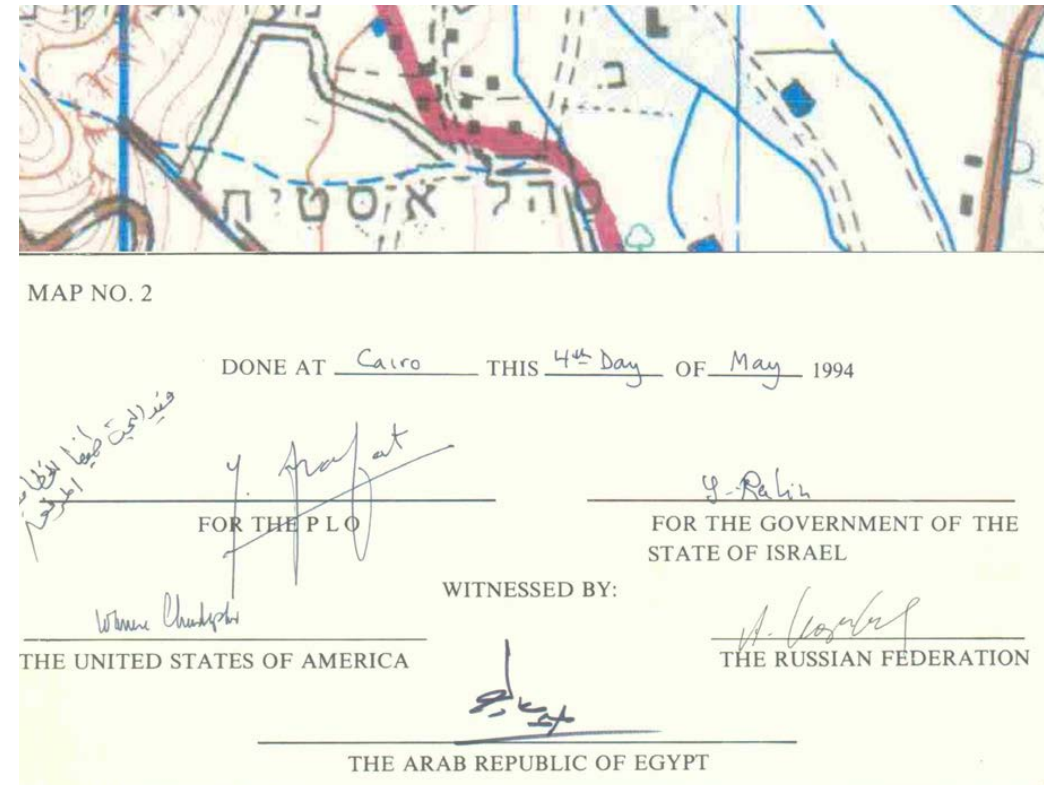 ב.
סהל אסטית
MAP NO. 2
DONE AT Cairo THIS 4th Day OF May 1994
قيد البحث طبقا
Y. Arafat
Y. Rabin
FOR THE P L O
FOR THE GOVERNMENT OF THE
STATE OF ISRAEL
WITNESSED BY:
Warren Christopher
THE UNITED STATES OF AMERICA
THE RUSSIAN FEDERATION
THE ARAB REPUBLIC OF EGYPT